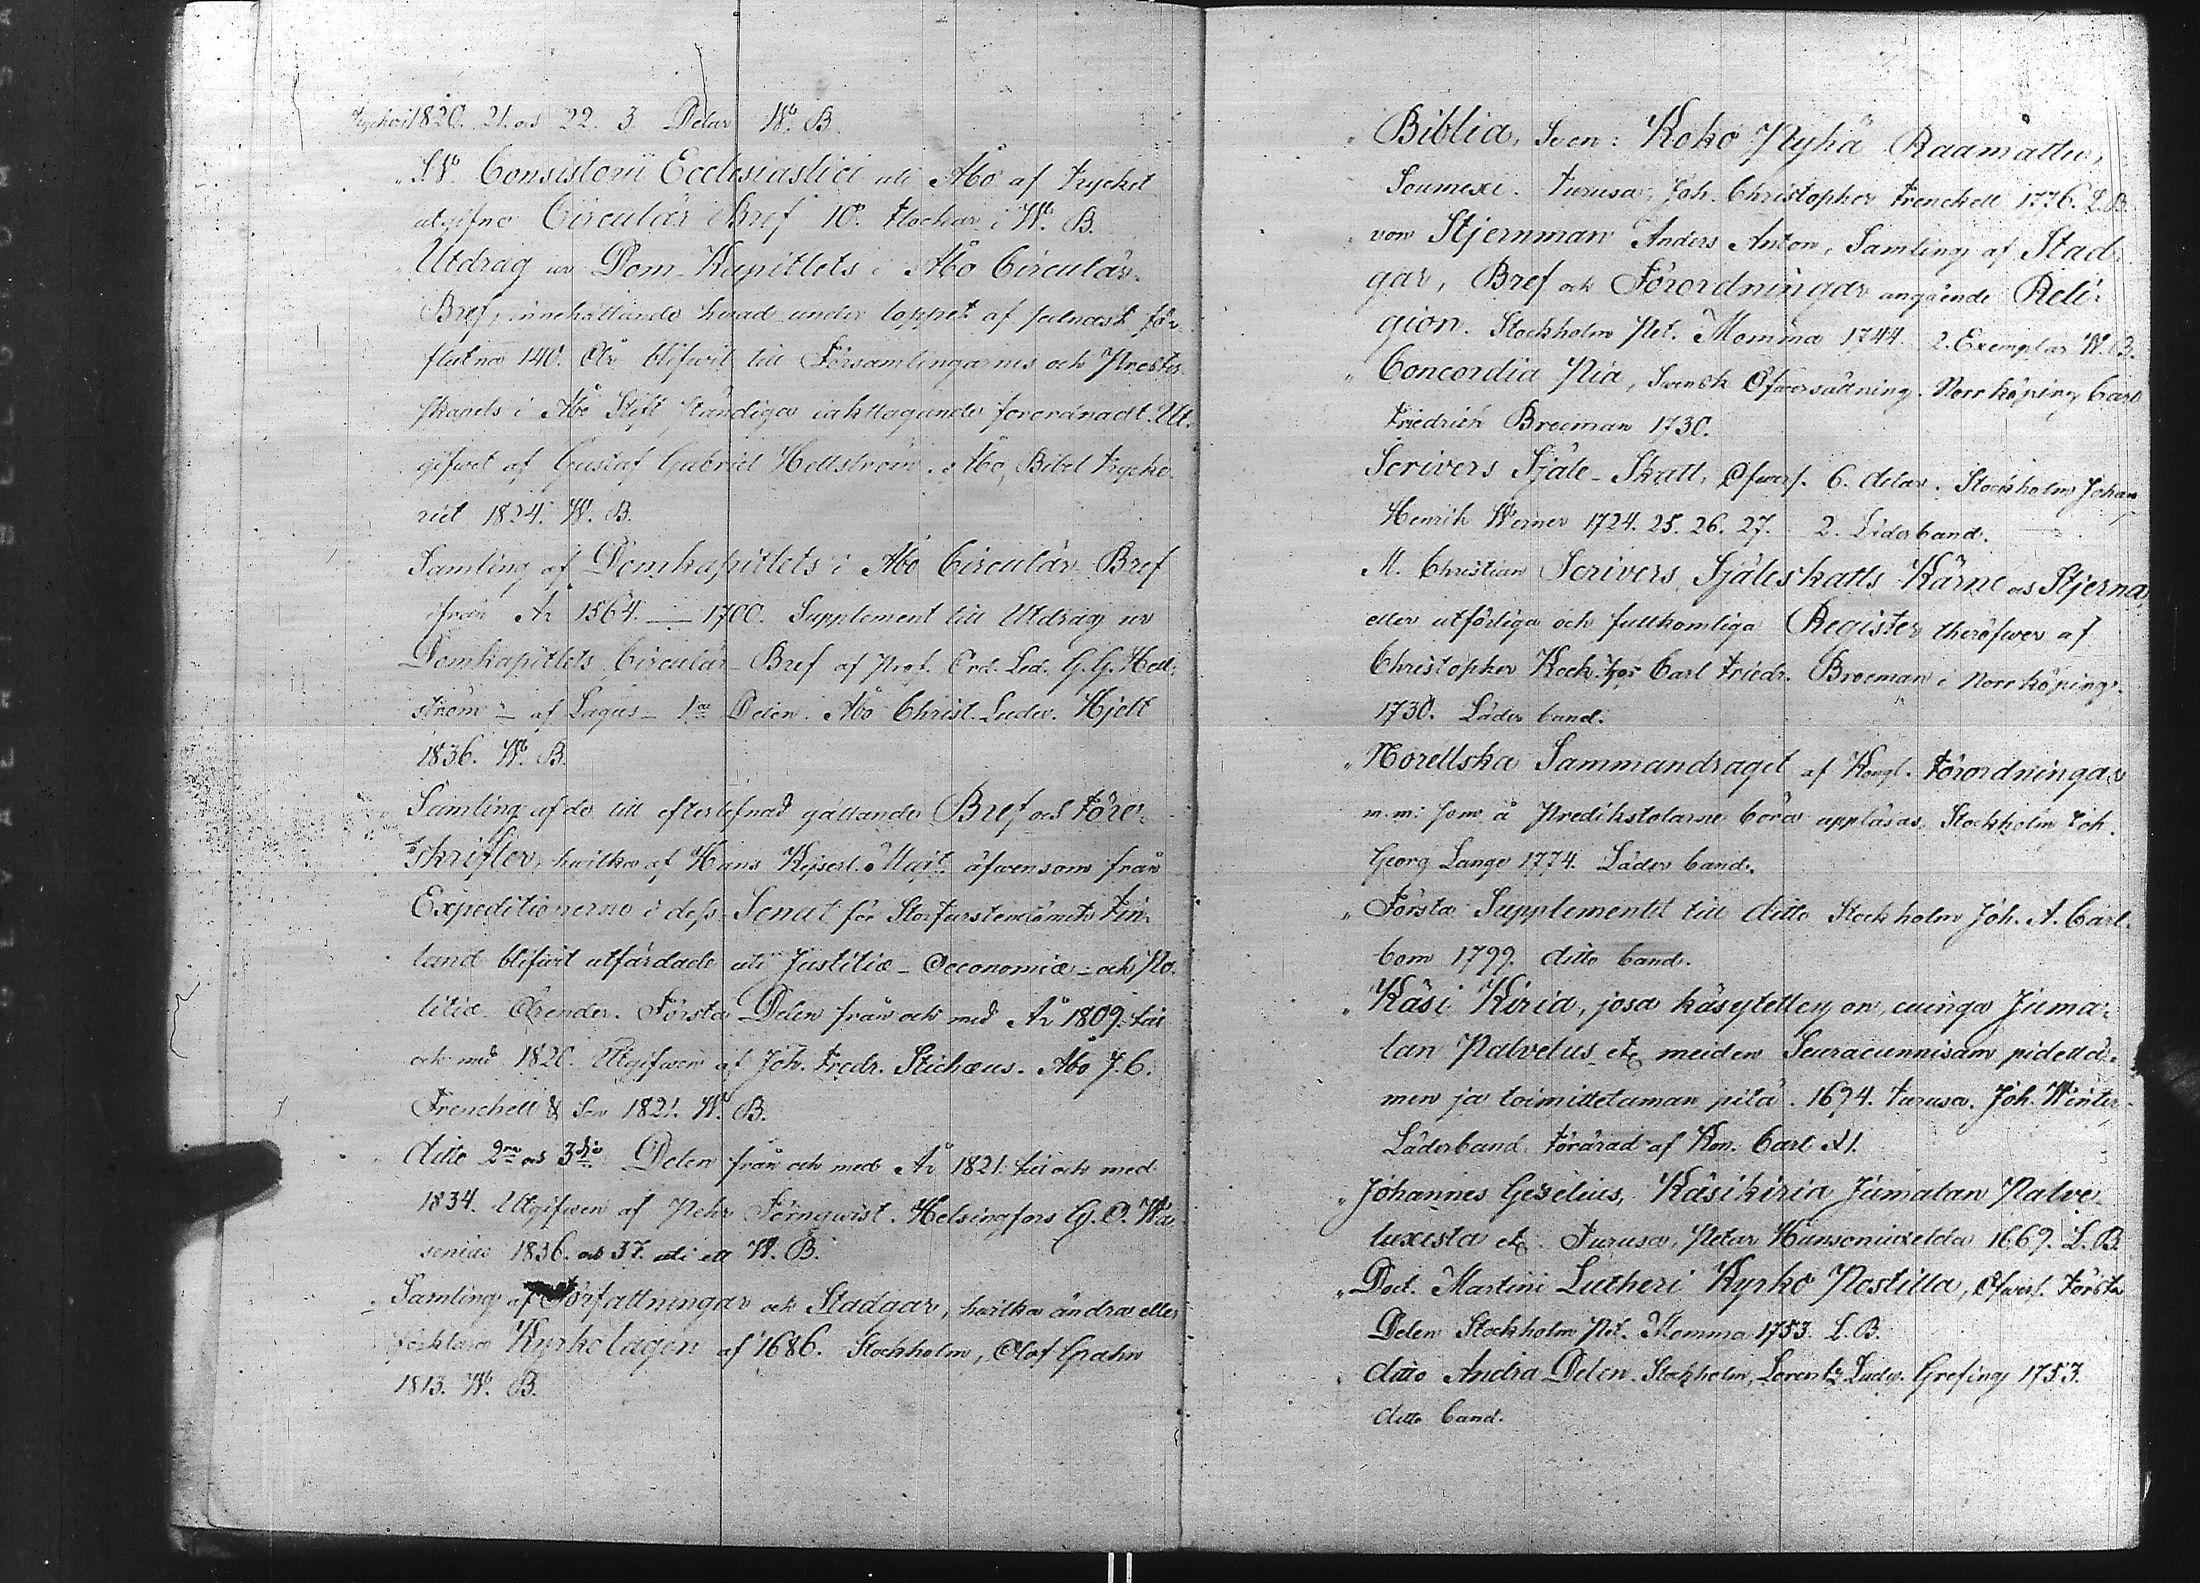 tryckeri 1820. 21. och 22. 3 Delar Wb. B.
" Sl. Consistorii Ecclesiastici uti Åbo af trycket
utgifne Circulär Bref 10. flockar i Wb. B.
" Utdrag ur Dom-Kapitlets i Åbo Circulär-
Bref, innehållande hvad under loppet af sednast för-
flutna 140. År blifwit till Församlingarnes och Prester-
skapets i Åbo Stift ständiga iakttagande förordnadt. Ut-
gifwet af Gustaf Gabriel Hellström. Åbo, Bibel Trycke-
riet 1824. W. B.
Samling af Domkapitlets i Åbo Circulär Bref
ifrån År 1564. — 1700. Supplement till Utdrag ur
Domkapitlets Circulär-Bref af Prof. Ord. Led. G. G. Hell-
ström — af Lagus — 1sta Delen. Åbo Christ. Ludv. Hjelt
1836. Wb. B.
Samling af de till efterlefnad gällande Bref och Före-
skrifter, hwilka af Hans Kejserl. Majt. äfwensom från
Expeditionerne i dess Senat för Storfurstendömet Fin-
land blifwit utfärdade uti Justitiæ- Oeconomiæ- och Po-
litiæ- Ärender. Första Delen från och med År 1809. till
och med 1820. Utgifwen af Joh. Fredr. Stichæus. Åbo J. C.
Frenckell & Son 1821. Wb. B.
" ditto 2ra och 3dje Delen från och med År 1821. till och med
1834. Utgifwen af Pehr Törnqwist. Helsingfors G. O. Wa-
senius 1836. och 37. uti ett W. B.
" Samling af Författningar och Stadgar, hwilka ändra eller
förklara Kyrko lagen af 1686. Stockholm, Olof Grahn
1813. Wb. B.
" Biblia, Se on: Koko Pyhä Raamattu,
Suomexi. Turusa, Joh. Christopher Frenckell 1776. L. B.
" von Stjernman Anders Anton, Samling af Stad-
gar, Bref och Förordningar angående Reli-
gion. Stockholm Pet. Momma 1744. 2. Exemplar W. B.
" Concordia Pia, Swensk Öfwersättning. Norrköping Carl
Friedrich Broeman 1730.
Scrivers Själe-Skatt, Öfwers. 6. delar. Stockholm Johan
Henrik Werner 1724. 25. 26. 27. 2. Läderband.
M. Christian Scrivers Själeskatts Kärne och Stjerna,
eller utförliga och fullkomliga Register theröfwer af
Christopher Keck hos Carl Friedr. Broeman i Norrköping.
1730. Läder band.
" Norellska Sammandraget af Kongl. Förordningar
m. m: som å Predikstolarne böra uppläsas, Stockholm Joh.
Georg Lange 1774. Läder band.
" Första Supplementet till ditto Stockholm Joh. A. Carl-
bom 1799. ditto band.
" Käsi Kiria, josa käsytetty on, cuinga Juma-
lan Palvelus etc meiden Seuracunnisam pidettä-
men ja toimittetaman pitä. 1694. Turusa. Joh. Winter-
Läderband. Förärad af Kon. Carl XI.
" Johannes Gezelius, Käsikiria Jumalan Palve-
luxesta etc. Turusa, Petar Hansoniuxelda 1669. L. B.
" Doct. Martini Lutheri Kyrko Postilla, Öfwers. Första
Delen Stockholm Pet. Momma 1753. L. B.
" ditto Andra Delen. Stockholm, Lorentz Ludv. Grefing 1753.
ditto band.